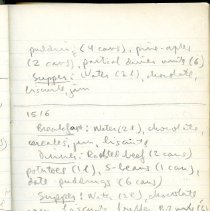 pudding (4 cans), pine-apple
(2 cans), partial dinner units (6)
Supper: Water (2 l), chocolate,
biscuits, jam
15/6
Breakfast: Water (2 l), chocolate,
cereales, jam, biscuits
Dinner: Roasted beef (2 cans)
potatoes (1 l), S-beans (1 can),
date puddings (6 cans)
Supper: Water (2 l), chocolate
biscuits